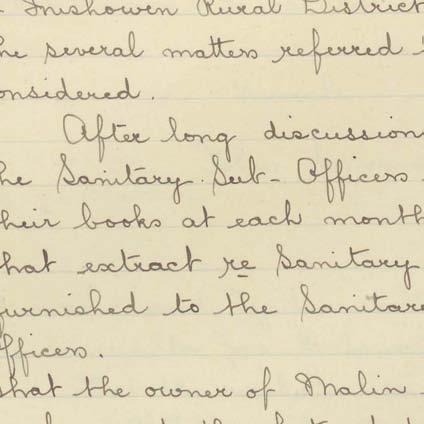 Inishowen Rural District
he several matters referred
onsidered.
After long discussion
he Sanitary Sub-Officers
heir books at each month
hat extract re Sanitary
urnished to the Sanitar
fficers.
that the owner of Malin